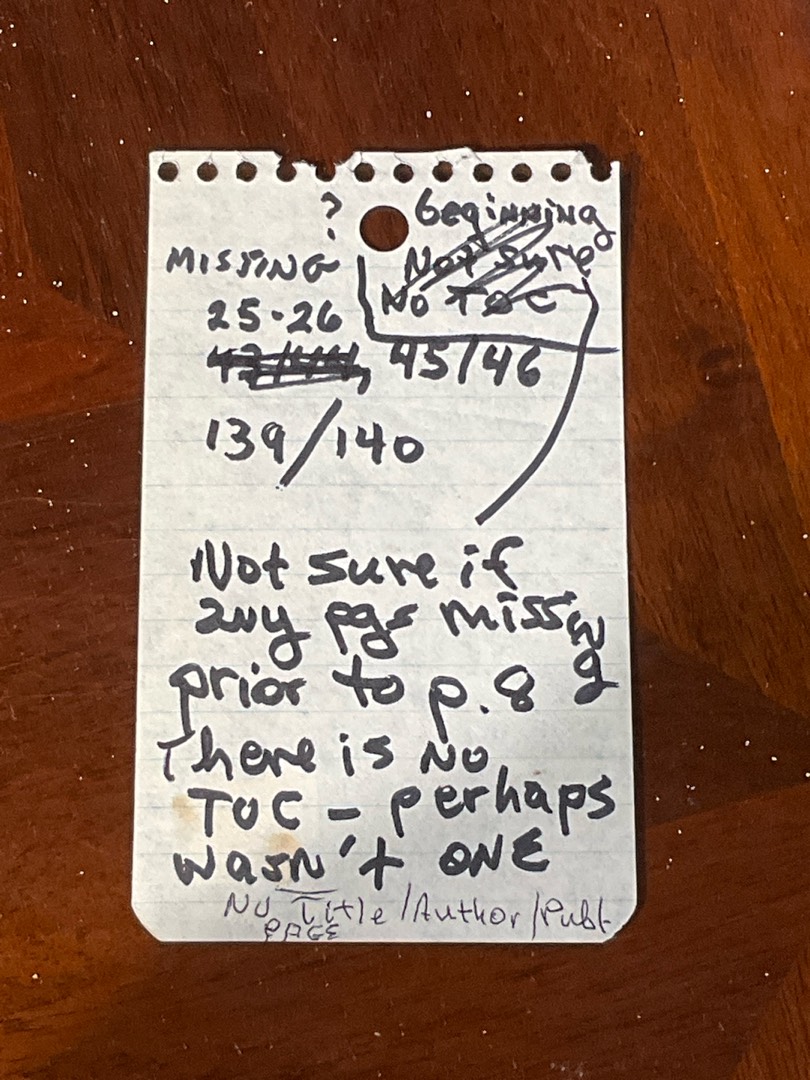 ?
MISSING
25-26
45/46
139/140
beginning
Not sure
No TOC
Not sure if
any pgs missing
prior to p. 8
There is no
TOC – perhaps
wasn't ONE
No Title/Author/Publ.
PAGE